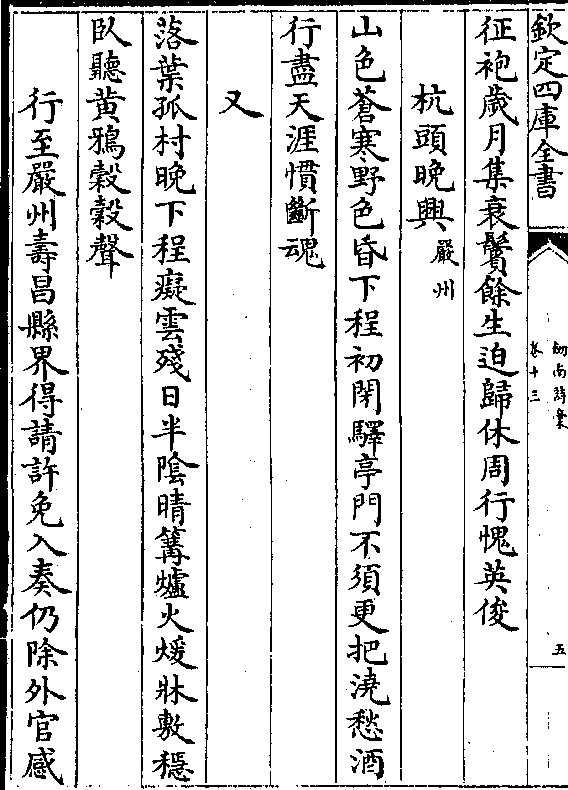 欽定四庫全書
劒南詩藁
卷十三
五
征袍歲月集衰鬢餘生迫歸休周行愧英俊
杭頭晚興嚴州
山色蒼寒野色昏下程初閉驛亭門不須更把澆愁酒
行盡天涯慣斷魂
又
落葉孤村晚下程癡雲殘日半陰晴篝爐火煖牀敷穩
臥聽黃鴉穀穀聲
行至嚴州壽昌縣界得請許免入奏仍除外官感